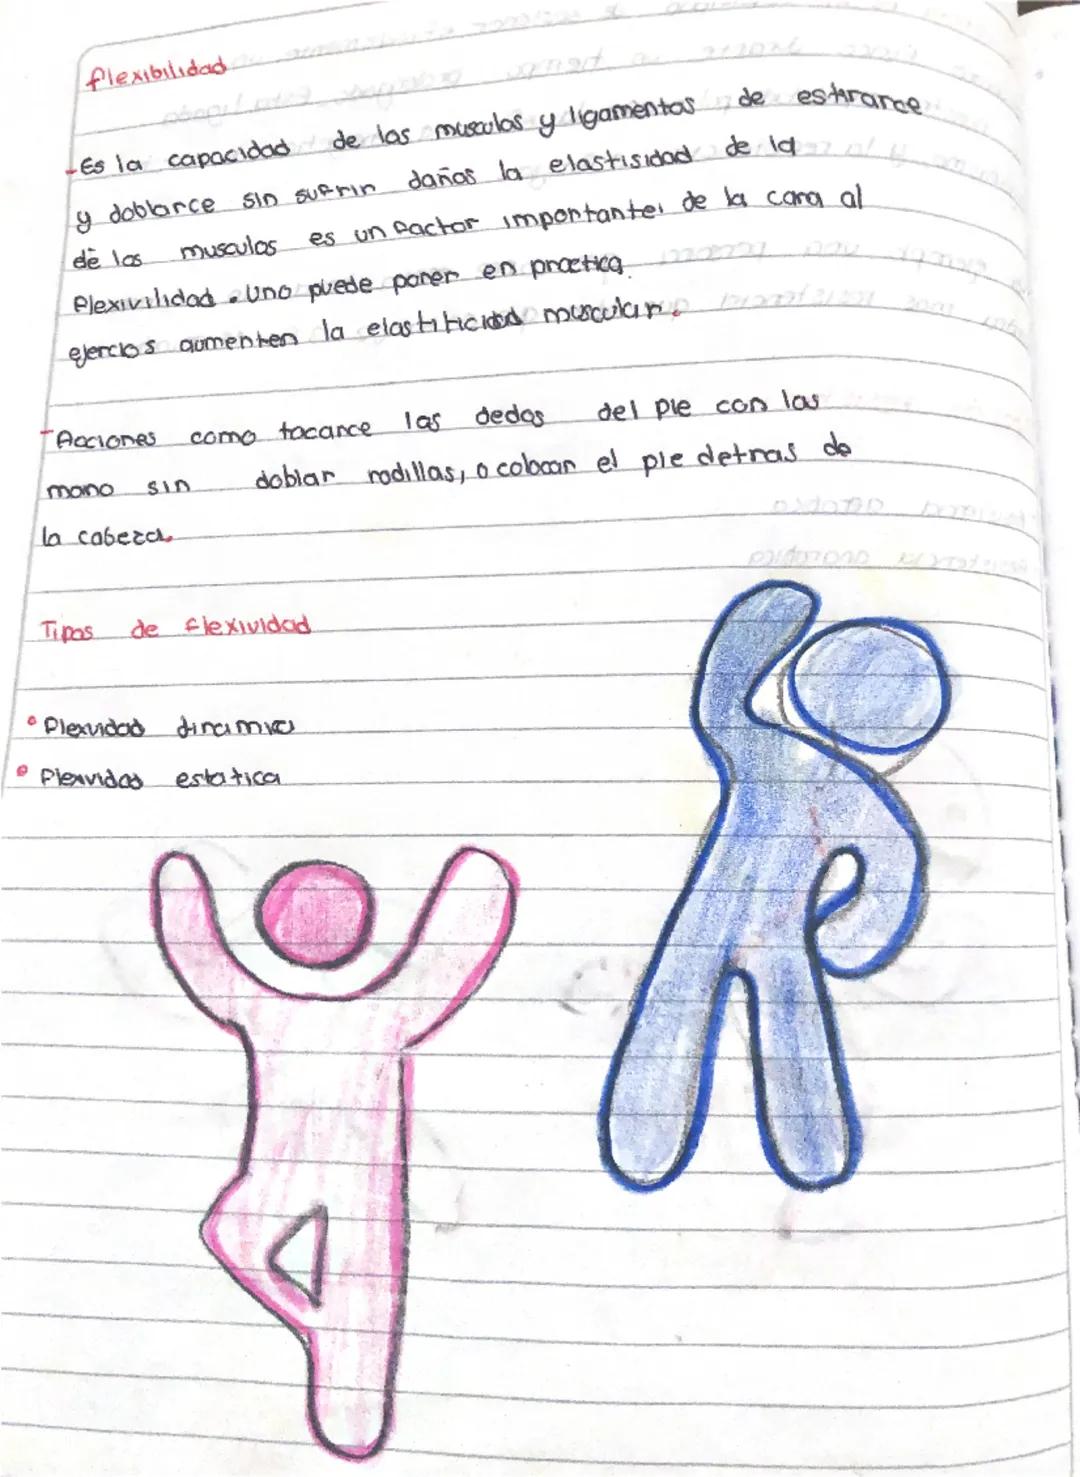 flexibilidad
-Es la capacidad de los musculos y ligamentos de estirarce
y doblarce sin sufrin daños la elastisidad de la
de los musculos es un factor importante, de la cara al
flexivilidad. Uno puede poner en practica
ejercios aumenten la elastiticidad muscular.
-Acciones como tocarce las dedos del pie con las
mano sin doblar rodillas, o colocar el pie detras de
la cabeza.
Tipos de flexividad
• flexvidad dinamica
• flexvidad estatica